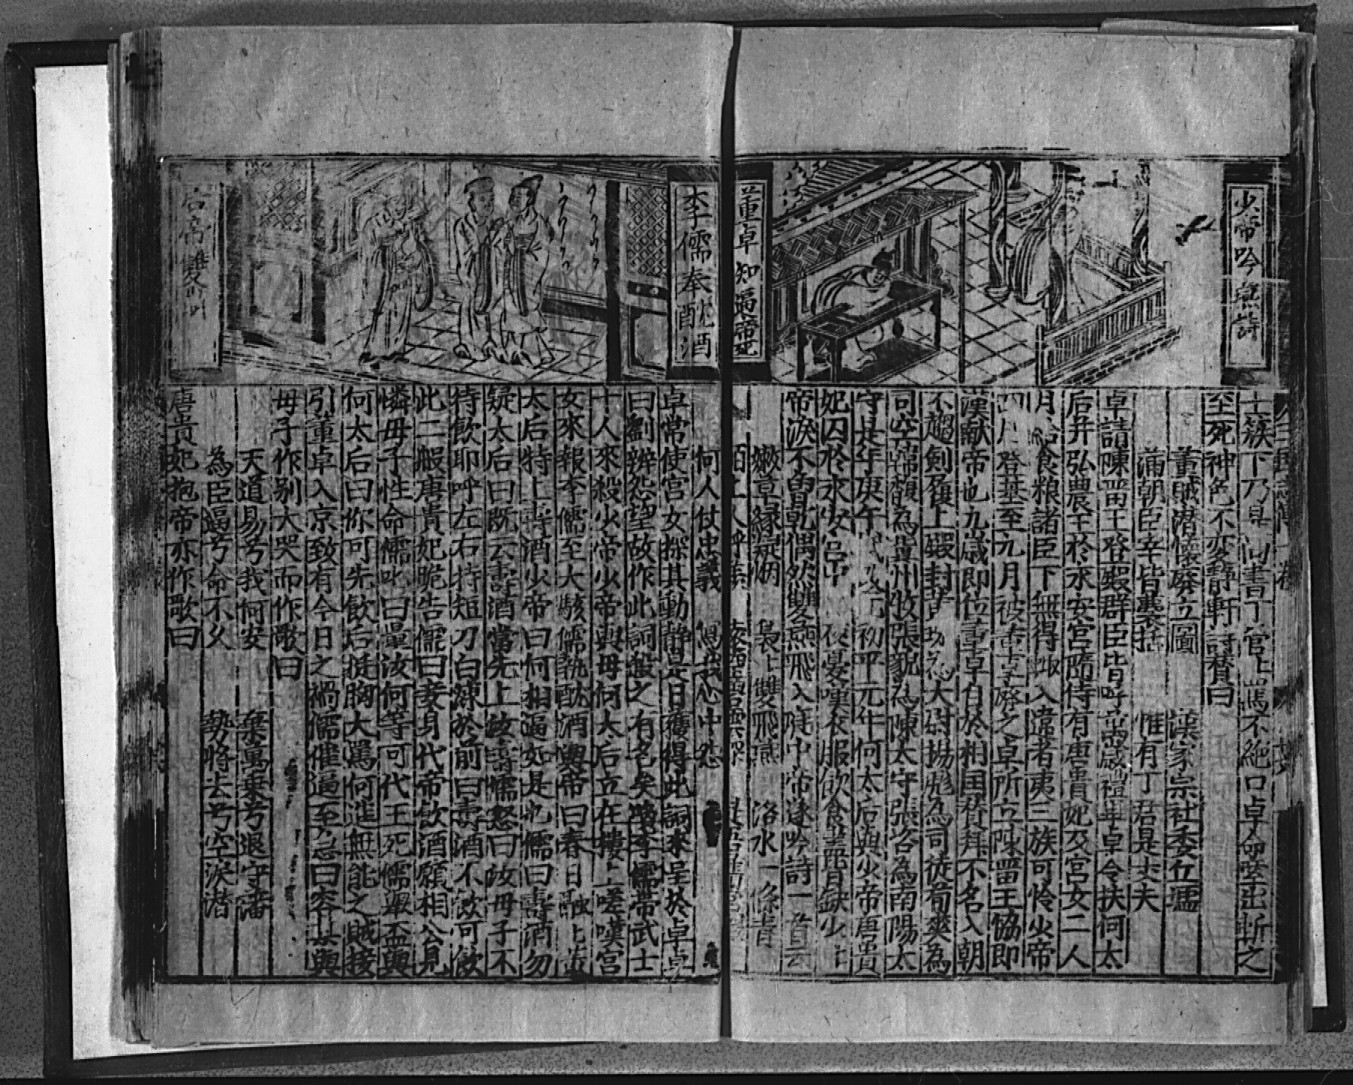 少帝吟燕詩
董卓知逼帝妃
士簇下乃是尚書丁管上罵不絕口卓命牽出斬之
至死神色不變靜軒詩贊曰
董賊潛懷廢立圖　漢家宗社委丘墟
滿朝臣宰皆囊括　惟有丁君是丈夫
卓請陳留王登殿群臣皆呼萬歲禮畢卓令扶何太
后并弘農王於永安宮隨侍有唐貴妃及宮女二人
月給食粮諸臣下無得輒入違者夷三族可怜少帝
四月登基至九月被董卓廢之卓所立陳留王協即
漢献帝也九歲即位董卓自於相国賛拜不名入朝
不趨剣履上殿封黄琬為大尉揚彪為司徒荀爽為
司空韓馥為冀州牧張邈為陳太守張咨為南陽太
守是年庚午改初平元年何太后與少帝唐貴
妃囚於永安宮中衣服飲食皆缺少
帝淚不曾乾偶然雙燕飛入庭中帝遂吟詩一首云
嫩草綠凝烟　裊裊雙飛燕　洛水一條青
陌上人呼羨
何人仗忠義　心中怨
李儒奉酖酒
卓常使宮女探其動靜是日獲得此詞來呈於卓卓
曰劉辨怨望故作此詞殺之有名矣喚李儒帶武士
十人來殺少帝少帝與母何太后立在樓上嗟嘆宮
女來報李儒至大駭儒執酖酒與帝曰春日融
大后特上壽酒少帝曰何相逼如是也儒曰壽酒勿
疑太后曰既云壽酒當先上飲儒怒曰汝母子不
待飲耶呼左右持短刀白練於前曰壽酒不飲可飲
此二般唐貴妃跪告儒曰妾身代帝飲酒願相公見
憐母子性命儒叱曰量汝何等可代王死儒舉盃與
何太后曰你可先飲后搥胸大罵何進無能之賊接
引董卓入京致有今日之禍儒催逼至急曰容某與
母子作別大哭而作歌曰
天道易兮我何安　棄萬乘兮退守藩
為臣逼兮命不久　勢將去兮空淚潸
唐貴妃抱帝亦作歌曰